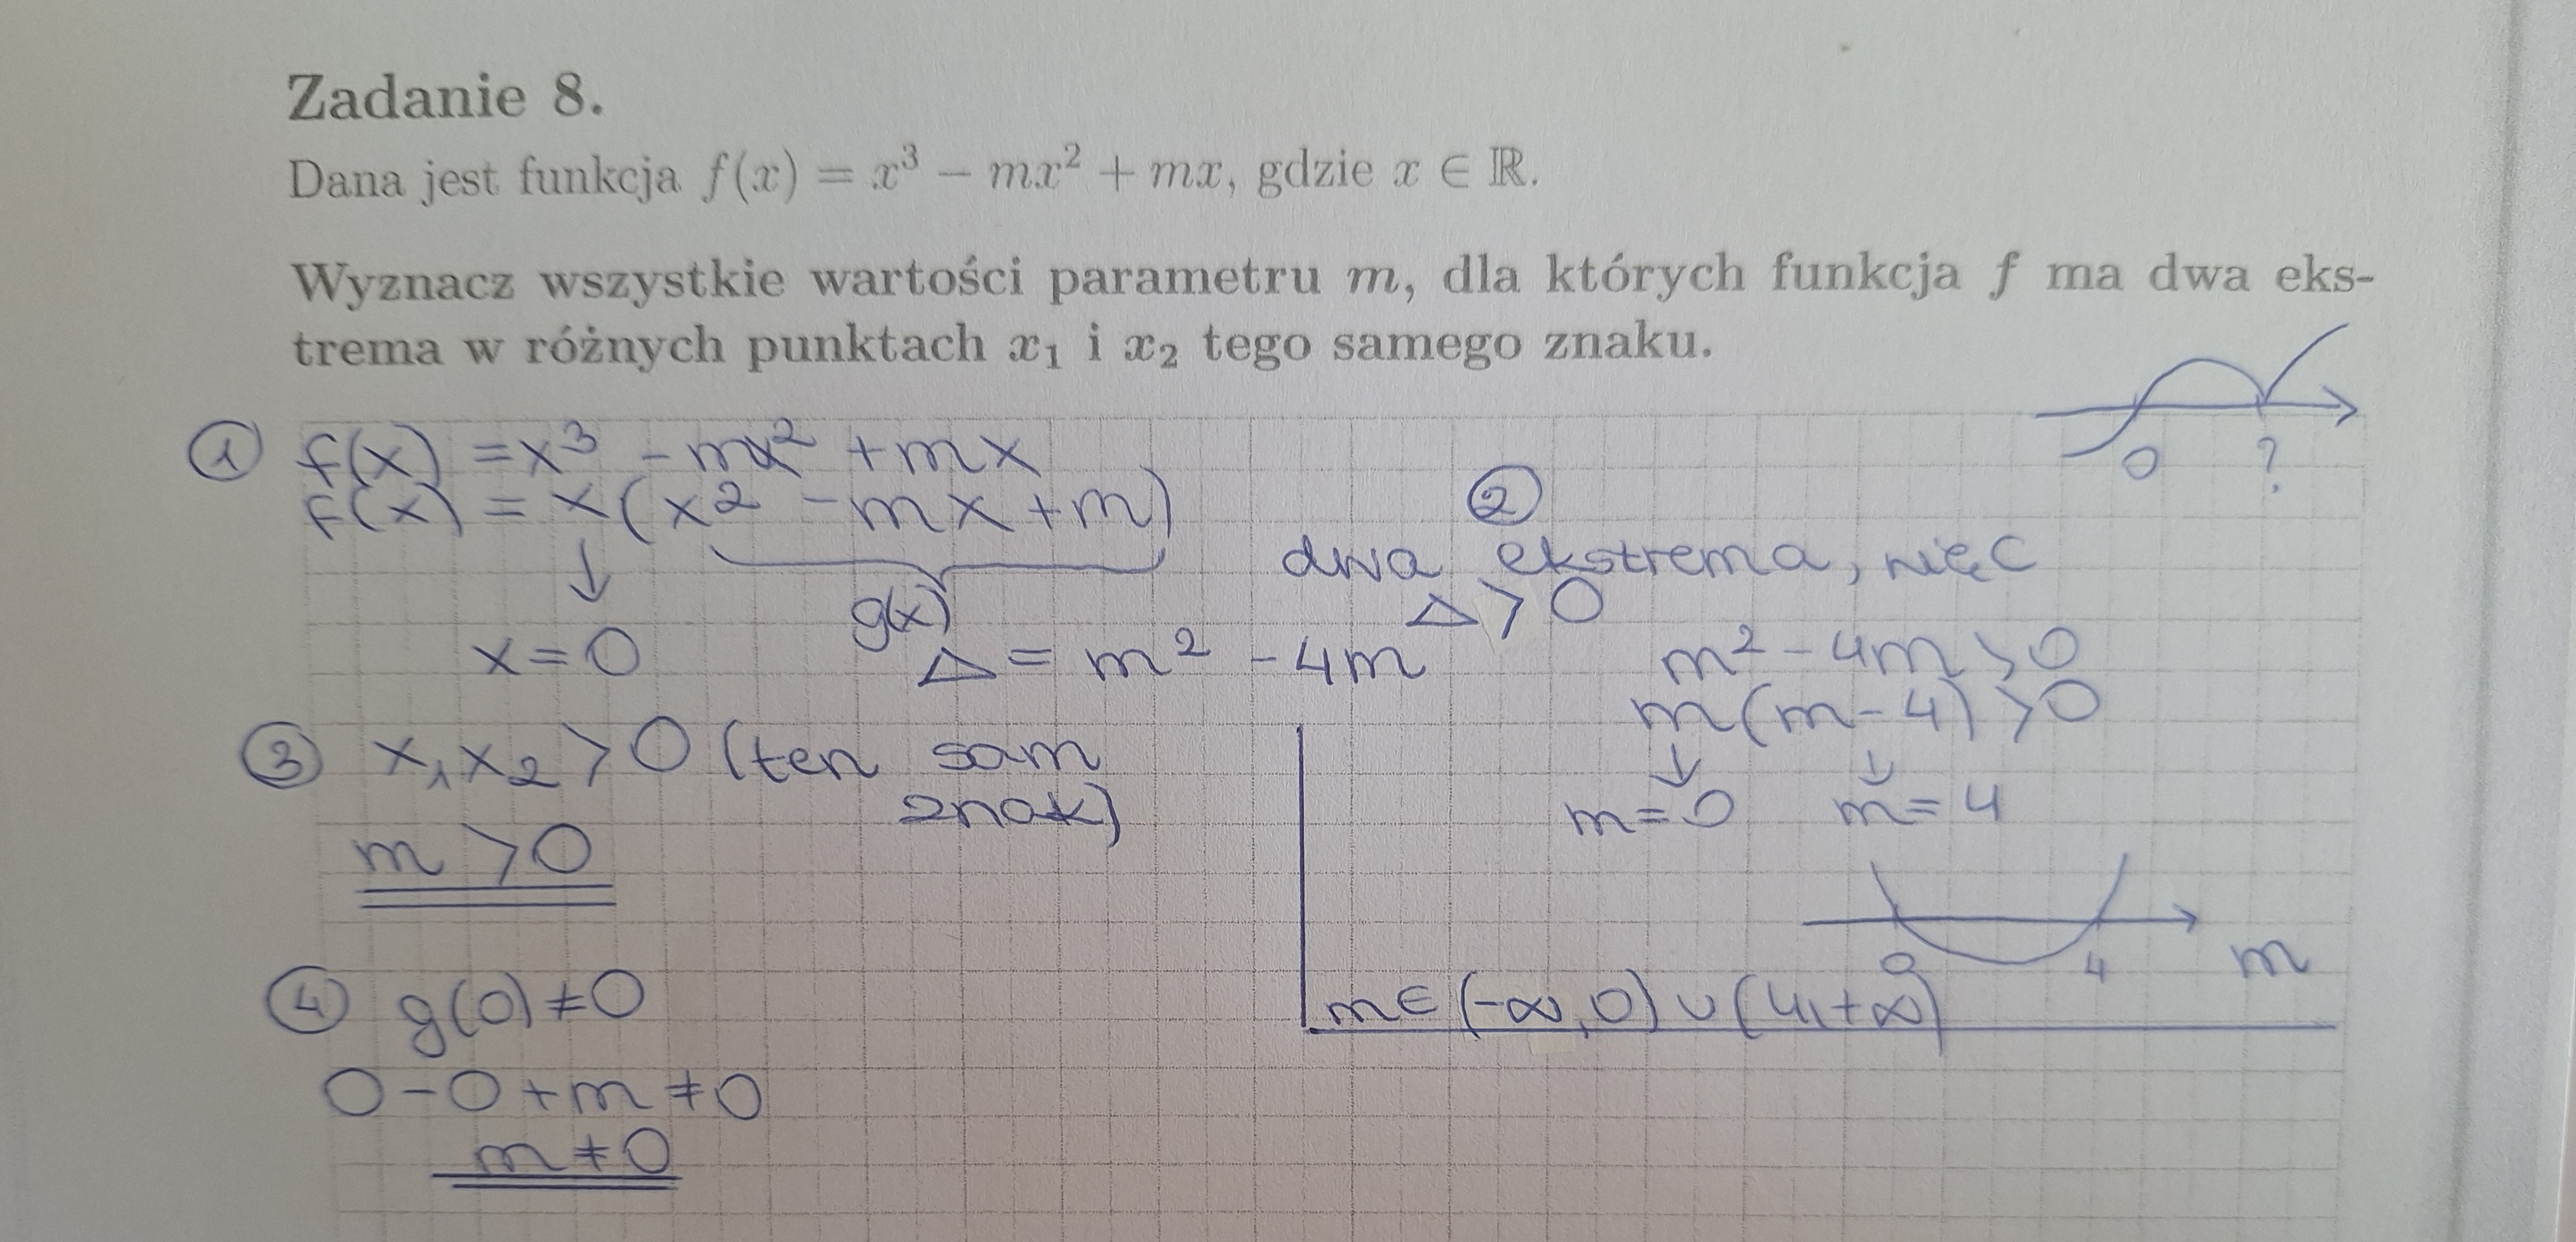 Zadanie 8.
Dana jest funkcja f(x) = x³ − mx² + mx, gdzie x ∈ ℝ.
Wyznacz wszystkie wartości parametru m, dla których funkcja f ma dwa eks-
trema w różnych punktach x₁ i x₂ tego samego znaku.
0 ?
① f(x) = x³ − mx² + mx
f(x) = x(x² − mx + m)
↓
x = 0
g(x)
Δ = m² − 4m
②
dwa ekstrema, więc
Δ > 0
m² − 4m > 0
m(m − 4) > 0
↓ ↓
m = 0 m = 4
0 4 m
m ∈ (−∞, 0) ∪ (4, +∞)
③ x₁x₂ > 0 (ten sam
znak)
m > 0
④ g(0) ≠ 0
0 − 0 + m ≠ 0
m ≠ 0